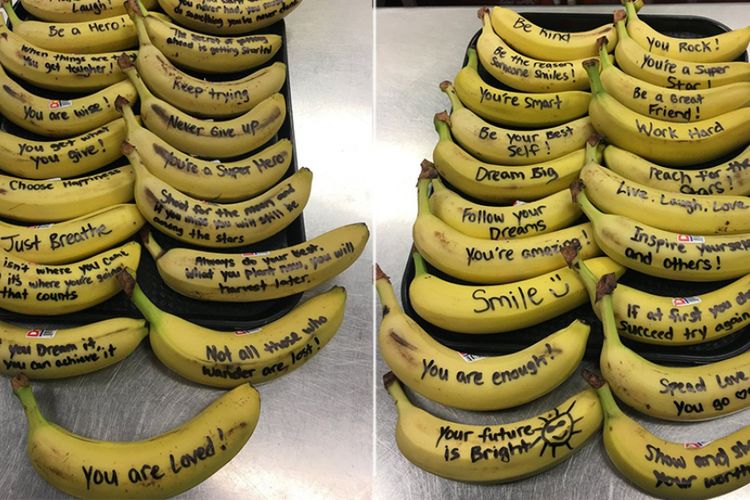 Laugh!
never had, you must
do something you've never
Be a Hero!
The secret of getting
ahead is getting started
When things are
You get tougher!
Keep trying
You are wise!
Never Give up
You get what
you give!
You're a Super Hero
Choose Happiness
Shoot for the moon and
if you miss you will still be
among the stars
Just Breathe
Always do your best.
What you plant now, you will
harvest later.
isn't where you came
its where you're going
that counts
Not all those who
wander are lost!
You Dream it,
You can achieve it
You are Loved!
Be Kind
You Rock!
Be the reason
Someone Smiles!
You're a Super
Star!
You're Smart
Be a Great
Friend!
Be Your Best
Self!
Work Hard
Dream Big
Reach for the
Stars!
Follow your
Dreams
Live, Laugh, Love
You're amazing!
Inspire yourself
and Others!
Smile
If at first you
succeed try again
You are enough!
Spread Love
You go
Your future
is Bright
Show and
your worth